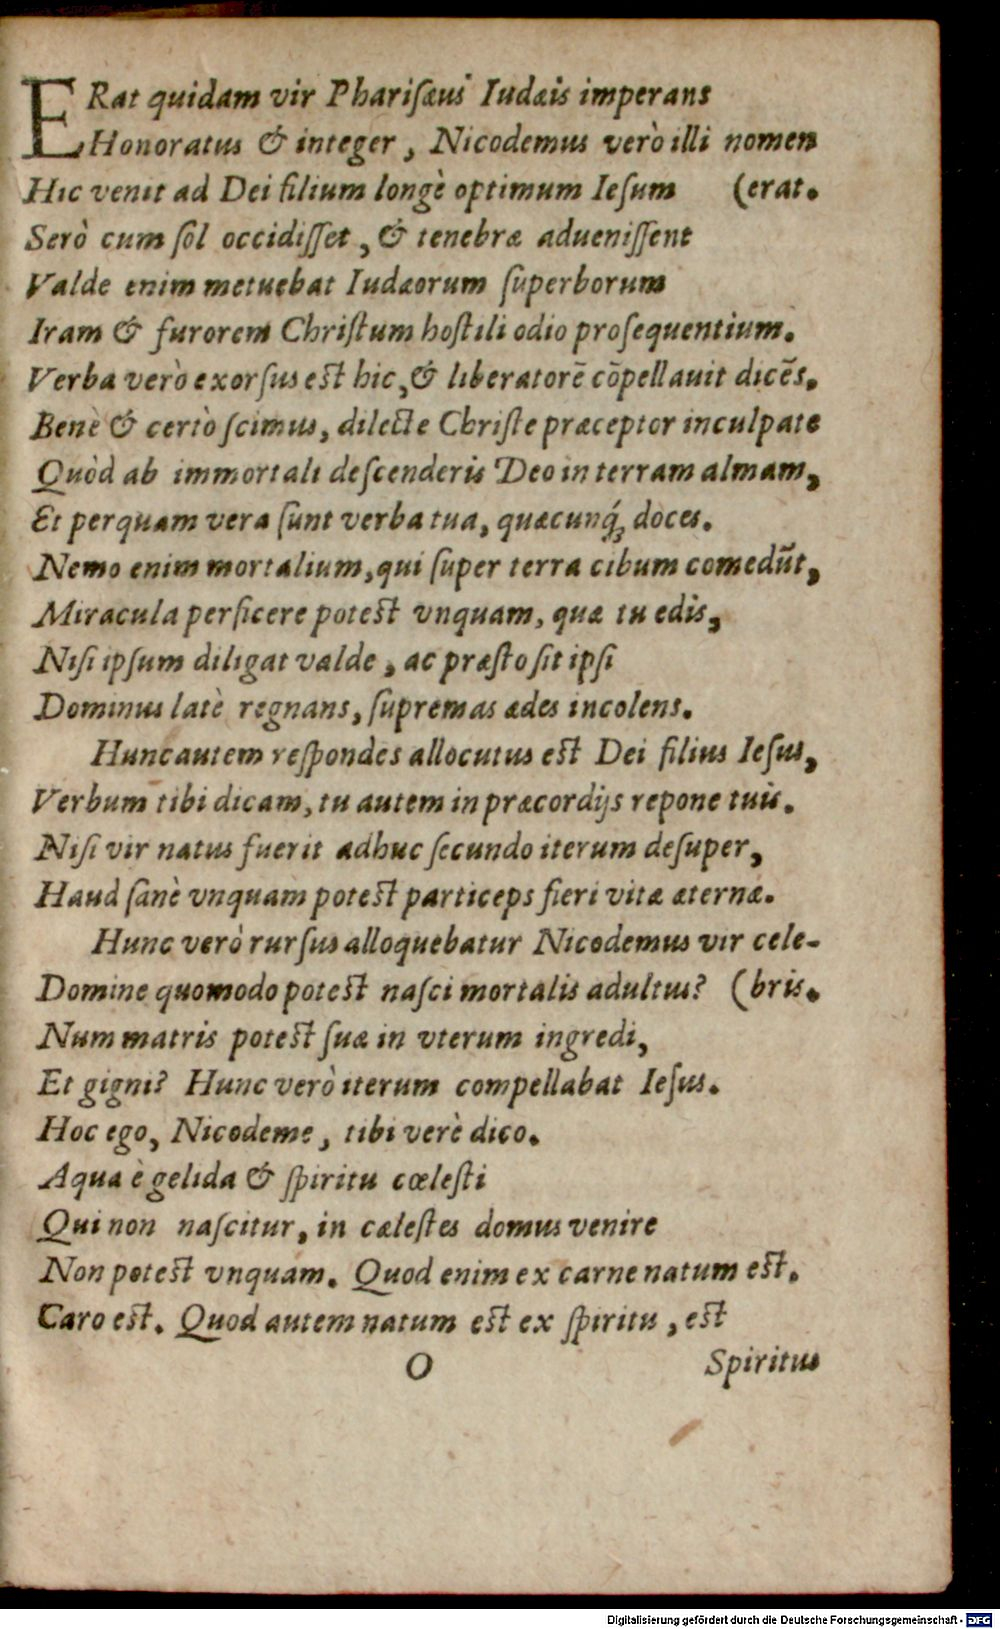 ERat quidam vir Pharisæus Iudæis imperans
Honoratus & integer, Nicodemus verò illi nomen
Hic venit ad Dei filium longè optimum Iesum (erat.
Serò cum sol occidisset, & tenebræ aduenissent
Valde enim metuebat Iudæorum superborum
Iram & furorem Christum hostili odio prosequentium.
Verba verò exorsus est hic, & liberatorē cōpellauit dicēs.
Benè & certò scimus, dilecte Christe præceptor inculpate
Quòd ab immortali descenderis Deo in terram almam,
Et perquam vera sunt verba tua, quæcunq; doces.
Nemo enim mortalium, qui super terra cibum comedūt,
Miracula perficere potest vnquam, quæ tu edis,
Nisi ipsum diligat valde, ac præsto sit ipsi
Dominus latè regnans, supremas ædes incolens.
Hunc autem respondes allocutus est Dei filius Iesus,
Verbum tibi dicam, tu autem in præcordijs repone tuis.
Nisi vir natus fuerit adhuc secundo iterum desuper,
Haud sanè vnquam potest particeps fieri vitæ æternæ.
Hunc verò rursus alloquebatur Nicodemus vir cele-
Domine quomodo potest nasci mortalis adultus? (bris.
Num matris potest suæ in vterum ingredi,
Et gigni? Hunc verò iterum compellabat Iesus.
Hoc ego, Nicodeme, tibi verè dico.
Aqua è gelida & spiritu cœlesti
Qui non nascitur, in cælestes domus venire
Non potest vnquam. Quod enim ex carne natum est.
Caro est. Quod autem natum est ex spiritu, est
O Spiritus
Digitalisierung gefördert durch die Deutsche Forschungsgemeinschaft - DFG